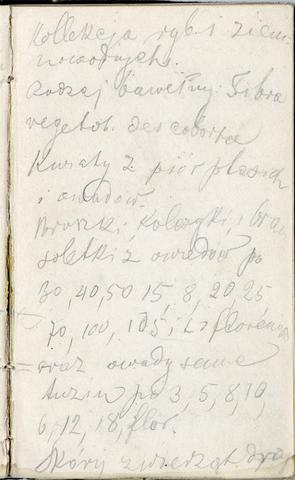 Kollekcja ryb i ziem-
nowodnych.
Rodzaj bawełny: Fibra
veget.
Kwiaty z piór ptasich
i owadów.
Broszki, kolczyki, bran
soletki z owadów po
30, 40, 50 15, 8, 20, 25
70, 100, i
oraz owady same
tuzin po 3, 5, 8, 10,
6, 12, 18, flor.
Skóry zwierząt